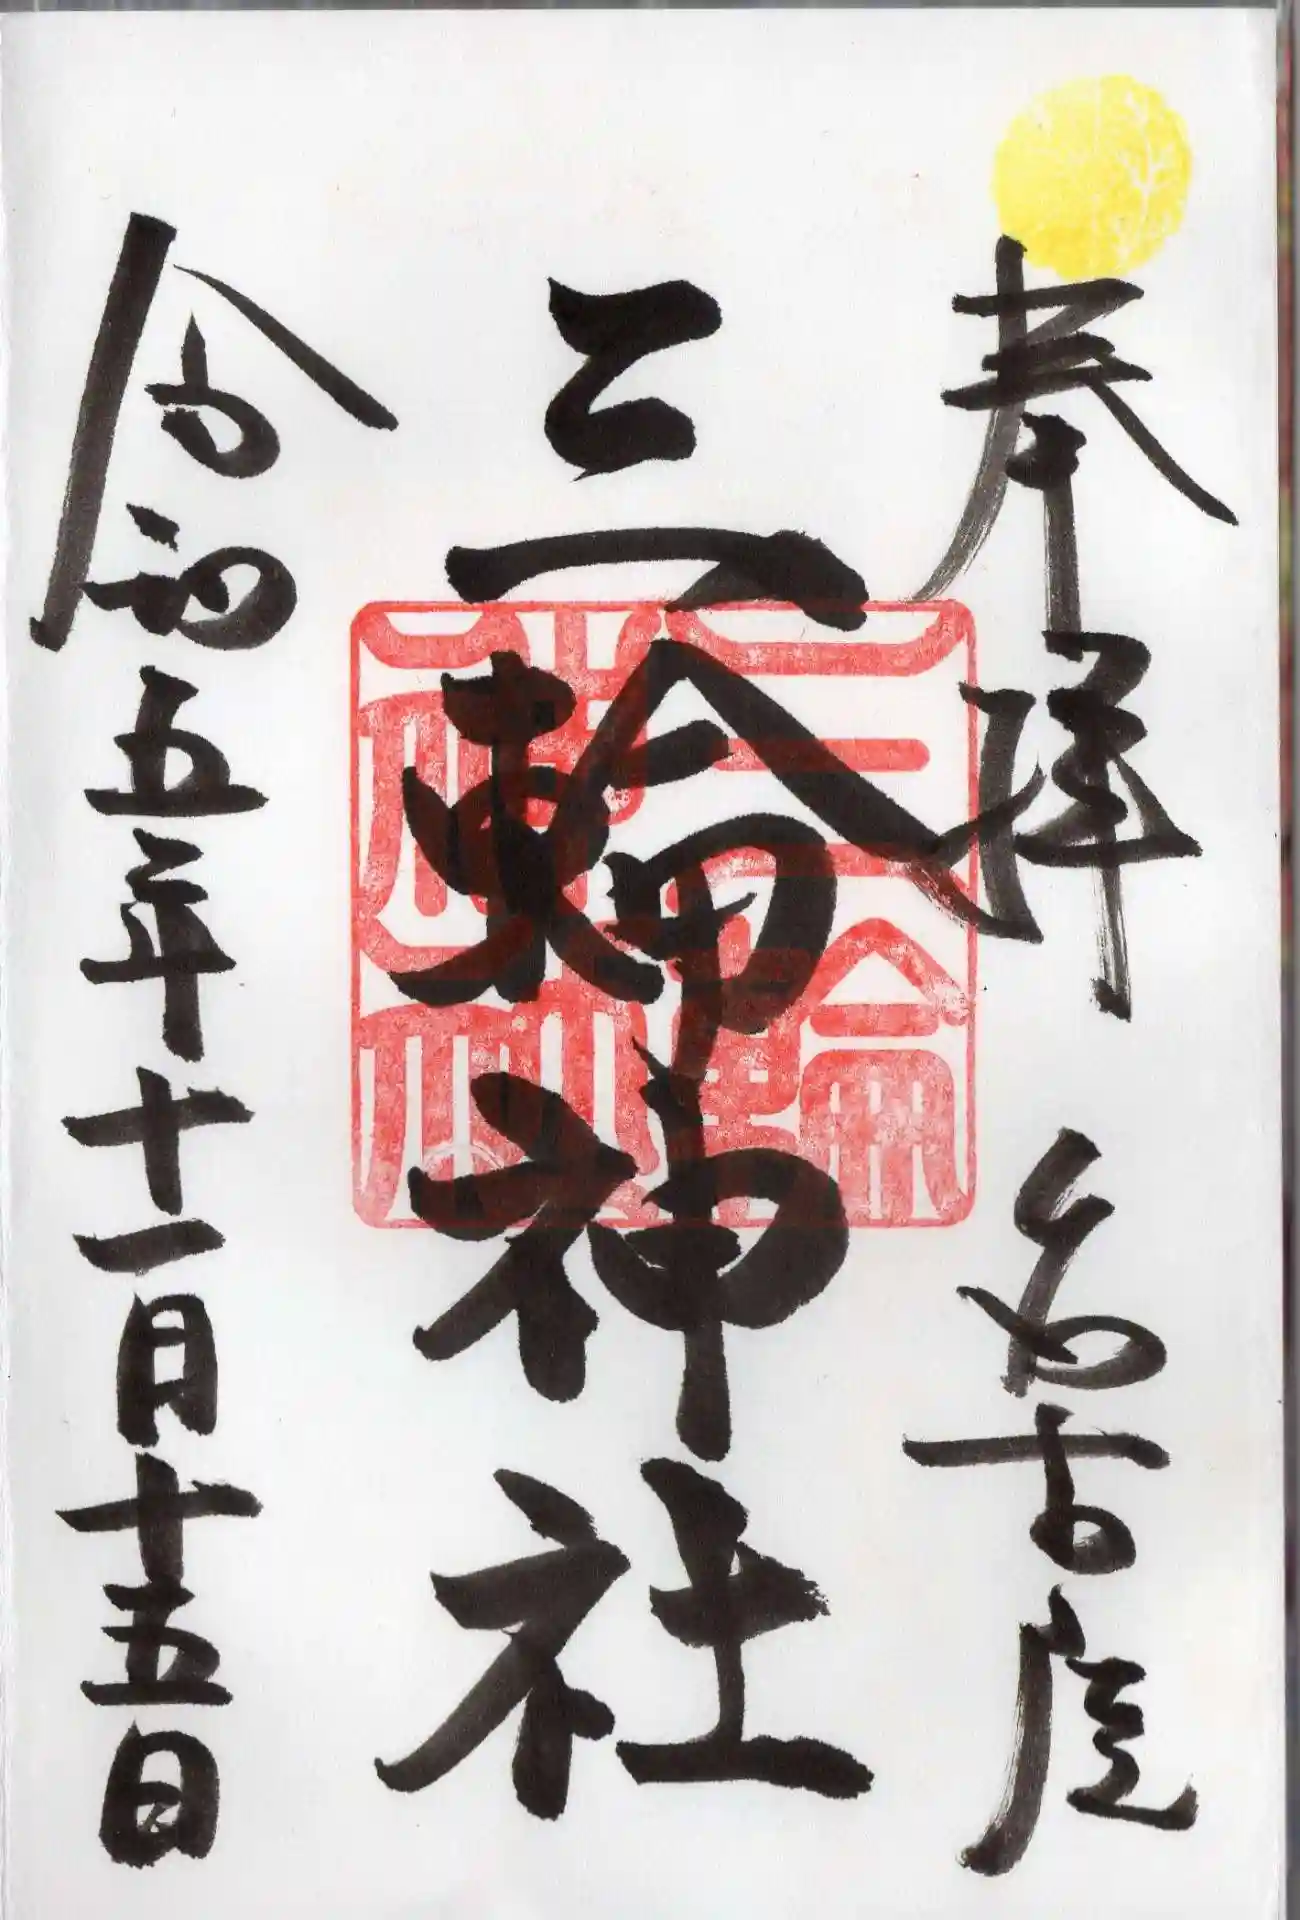 奉拝 名古屋
三輪神社
三輪神社
令和五年十一月十五日